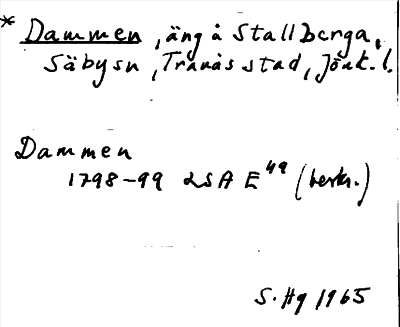 * Dammen, äng å Stallberga,
Säbysn, Tranås stad, Jönk.l.
Dammen
1798-99 LSA E49 (beskr.)
S.Hg 1965